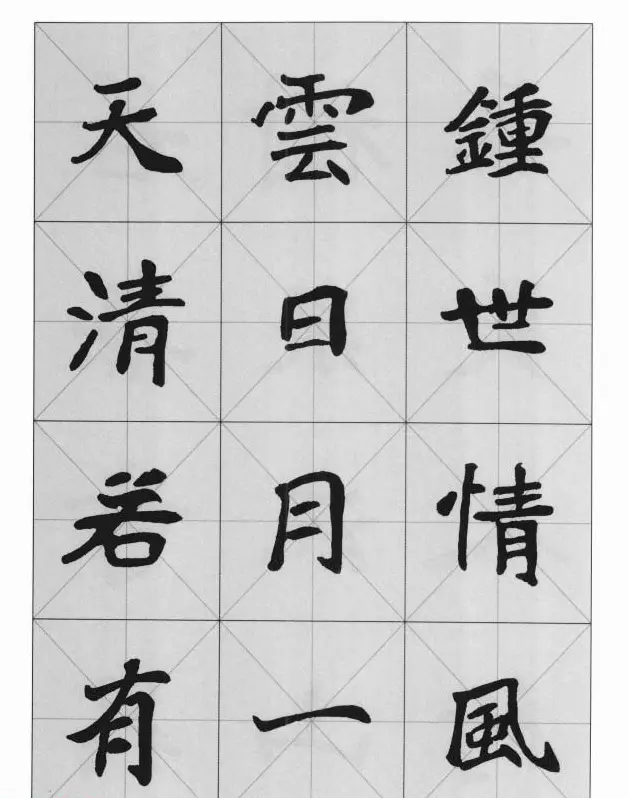 鍾世情風
雲日月一
天清若有